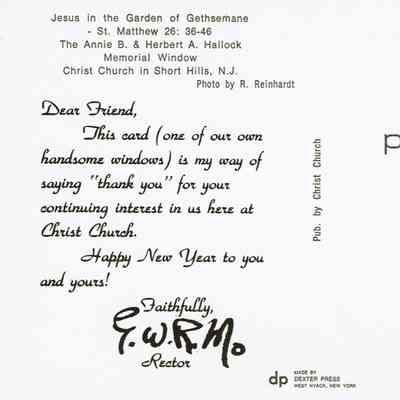 Jesus in the Garden of Gethsemane
- St. Matthew 26: 36-46
The Annie B. & Herbert A. Hallock
Memorial Window
Christ Church in Short Hills, N.J.
Photo by R. Reinhardt
Dear Friend,
This card (one of our own
handsome windows) is my way of
saying "thank you" for your
continuing interest in us here at
Christ Church.
Happy New Year to you
and yours!
Faithfully,
G.W.R.Mo
Rector
Pub. by Christ Church
P
dp MADE BY
DEXTER PRESS
WEST NYACK, NEW YORK